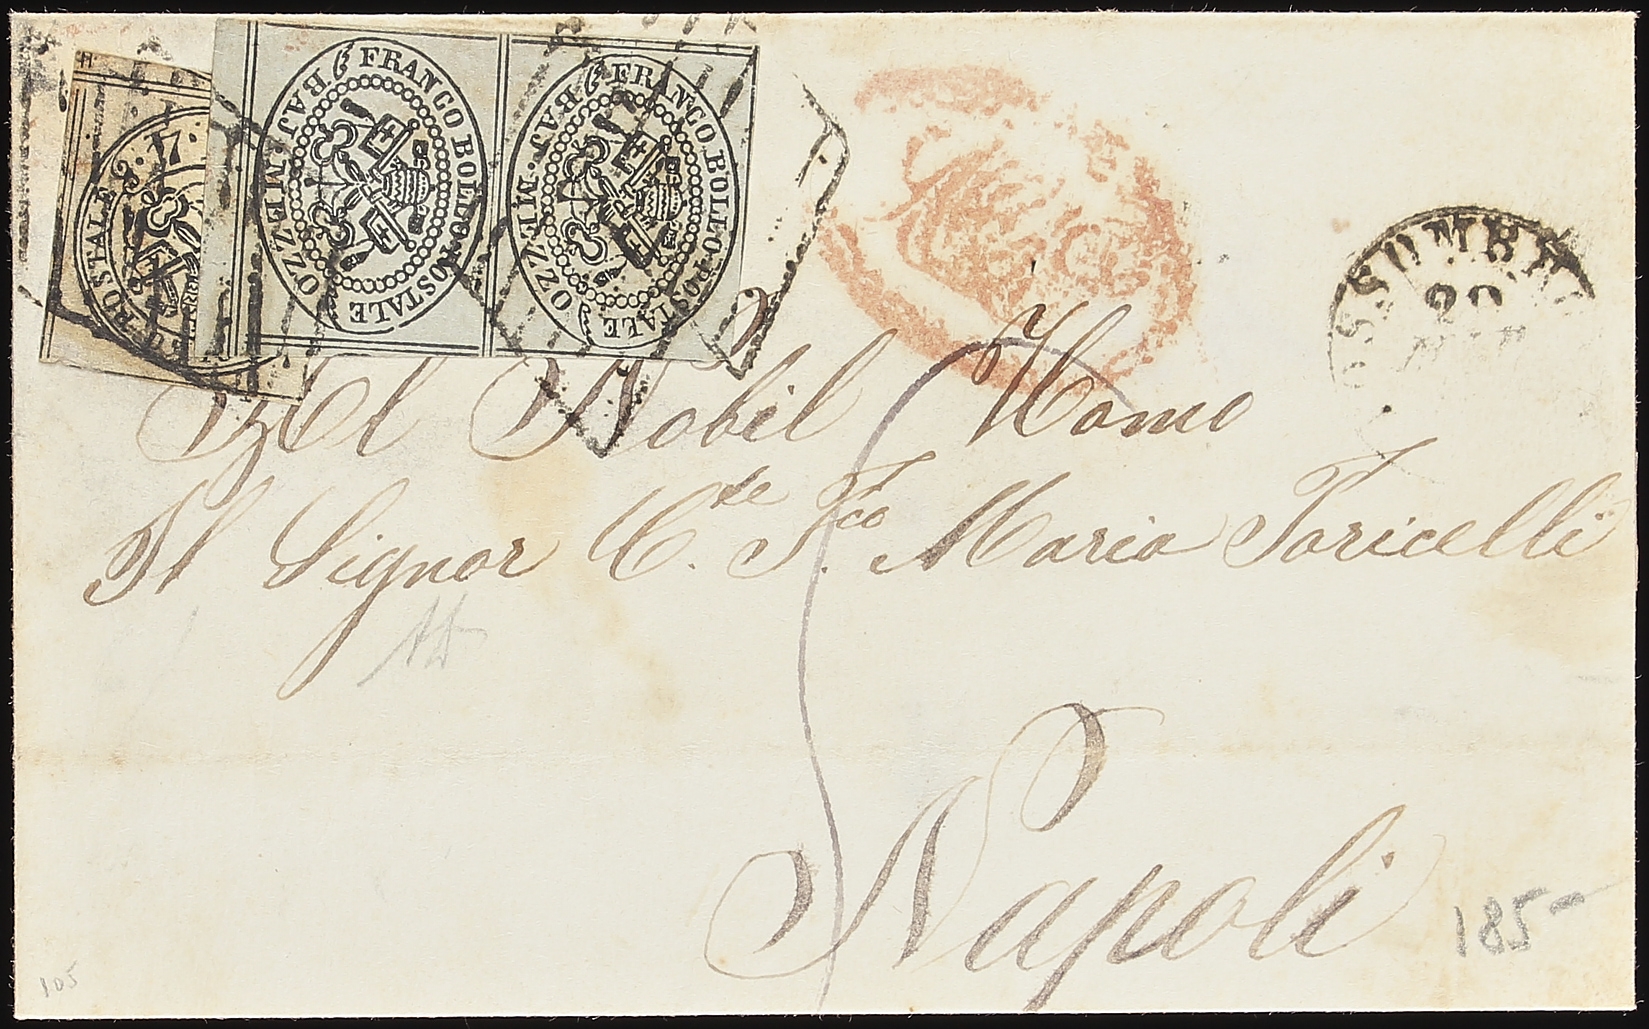 FRANCO BOLLO POSTALE MEZZO BAJ
FRANCO BOLLO POSTALE MEZZO BAJ
POSTALE
OSSOMBR
20
Al Nobil Uomo
Il Signor C.te F.co Maria Toricelli
Napoli
185-
105